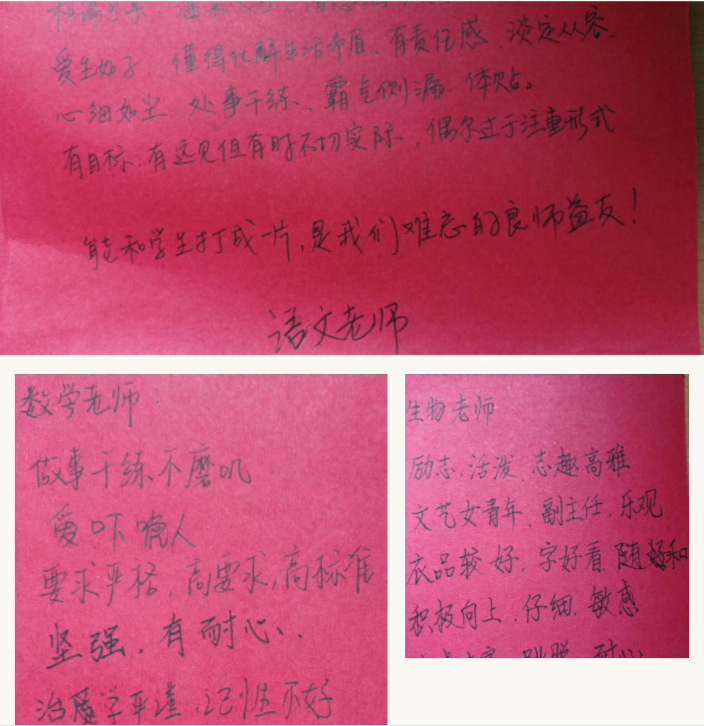 爱生如子、懂得化解生活矛盾、有责任感、淡定从容.
心细如尘 处事干练、霸气侧漏. 体贴。
有目标.有远见但有时不切实际.偶尔过于注重形式
能和学生打成一片,是我们难忘的良师益友!
语文老师
数学老师:
做事干练不磨叽
爱吓唬人
要求严格,高要求,高标准
坚强.有耐心、
治学严谨.记性不好
生物老师
励志.活泼 志趣高雅
文艺女青年、副主任.乐观
衣品较好.字好看.随和
积极向上.仔细.敏感